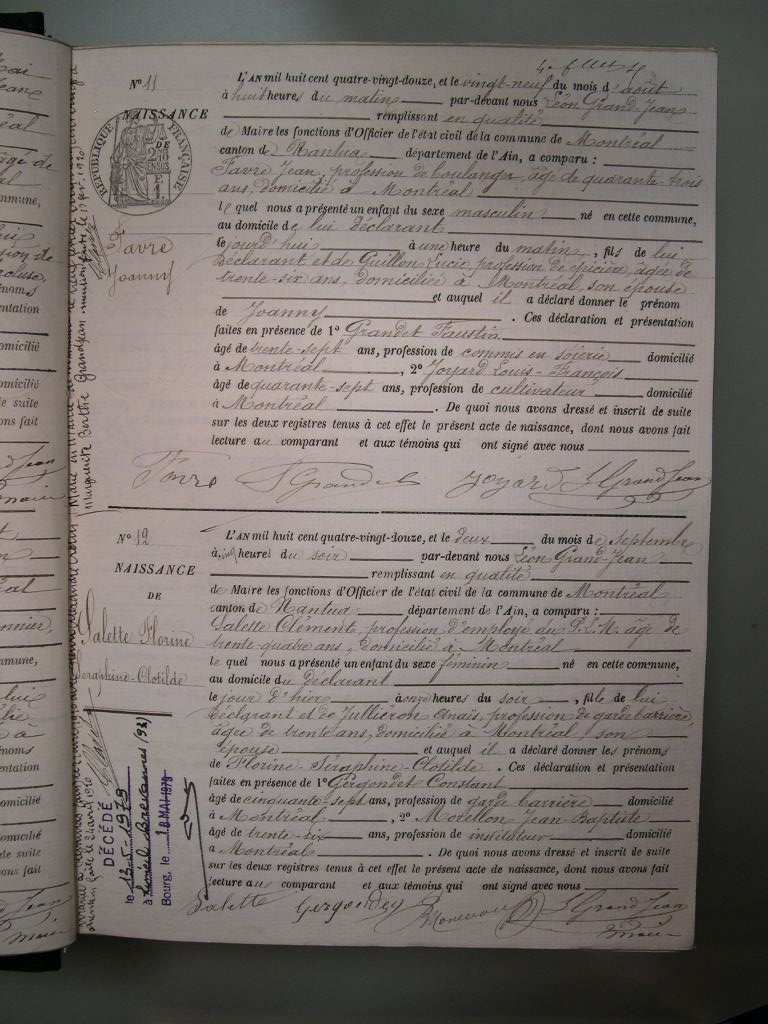 4e fllet
N° 11
NAISSANCE
DE
RÉPUBLIQUE FRANÇAISE
Favre
Joanny
L'AN mil huit cent quatre-vingt-douze, et le vingt-neuf du mois d'août
à huit heures du matin par-devant nous Léon Grand-Jean
remplissant en qualité
de Maire les fonctions d'Officier de l'état civil de la commune de Montréal
canton de Nantua département de l'Ain, a comparu :
Favre Jean, profession de boulanger, âgé de quarante-trois
ans, domicilié à Montréal
lequel nous a présenté un enfant du sexe masculin né en cette commune,
au domicile de lui déclarant
le jourd'hui à une heure du matin, fils de lui
déclarant et de Guillon Lucie, profession de épicière, âgée de
trente-six ans, domiciliée à Montréal, son épouse
et auquel il a déclaré donner le prénom
de Joanny. Ces déclaration et présentation
faites en présence de 1° Grandet Faustin
âgé de trente-sept ans, profession de commis en soierie domicilié
à Montréal, 2° Joyard Louis-François
âgé de quarante-sept ans, profession de cultivateur domicilié
à Montréal. De quoi nous avons dressé et inscrit de suite
sur les deux registres tenus à cet effet le présent acte de naissance, dont nous avons fait
lecture au comparant et aux témoins qui ont signé avec nous
Favre F Grandet Joyard L GrandJean
N° 12
NAISSANCE
DE
Salette Florine
Séraphine-Clotilde
L'AN mil huit cent quatre-vingt-douze, et le deux du mois de septembre
à cinq heures du soir par-devant nous Léon Grand-Jean
remplissant en qualité
de Maire les fonctions d'Officier de l'état civil de la commune de Montréal
canton de Nantua département de l'Ain, a comparu :
Salette Clément, profession d'employé au P.L.M. âgé de
trente-quatre ans, domicilié à Montréal
lequel nous a présenté un enfant du sexe féminin né en cette commune,
au domicile du déclarant
le jour d'hier à onze heures du soir, fille de lui
déclarant et de Jullieron Anaïs, profession de garde barrière,
âgée de trente ans, domiciliée à Montréal son
épouse et auquel il a déclaré donner les prénoms
de Florine-Séraphine-Clotilde. Ces déclaration et présentation
faites en présence de 1° Gergondet Constant
âgé de cinquante-sept ans, profession de garde barrière domicilié
à Montréal, 2° Morellon Jean Baptiste
âgé de trente-six ans, profession de instituteur domicilié
à Montréal. De quoi nous avons dressé et inscrit de suite
sur les deux registres tenus à cet effet le présent acte de naissance, dont nous avons fait
lecture au comparant et aux témoins qui ont signé avec nous
Salette Gergondey L GrandJean
maire
DÉCÉDÉ
le 13-5-1979
à Limeil Brévannes (94)
Bourg, le 18 MAI 1979
Marguerite Berthe Grandjean mention faite le 1920
mention faite le 24 avril 1920